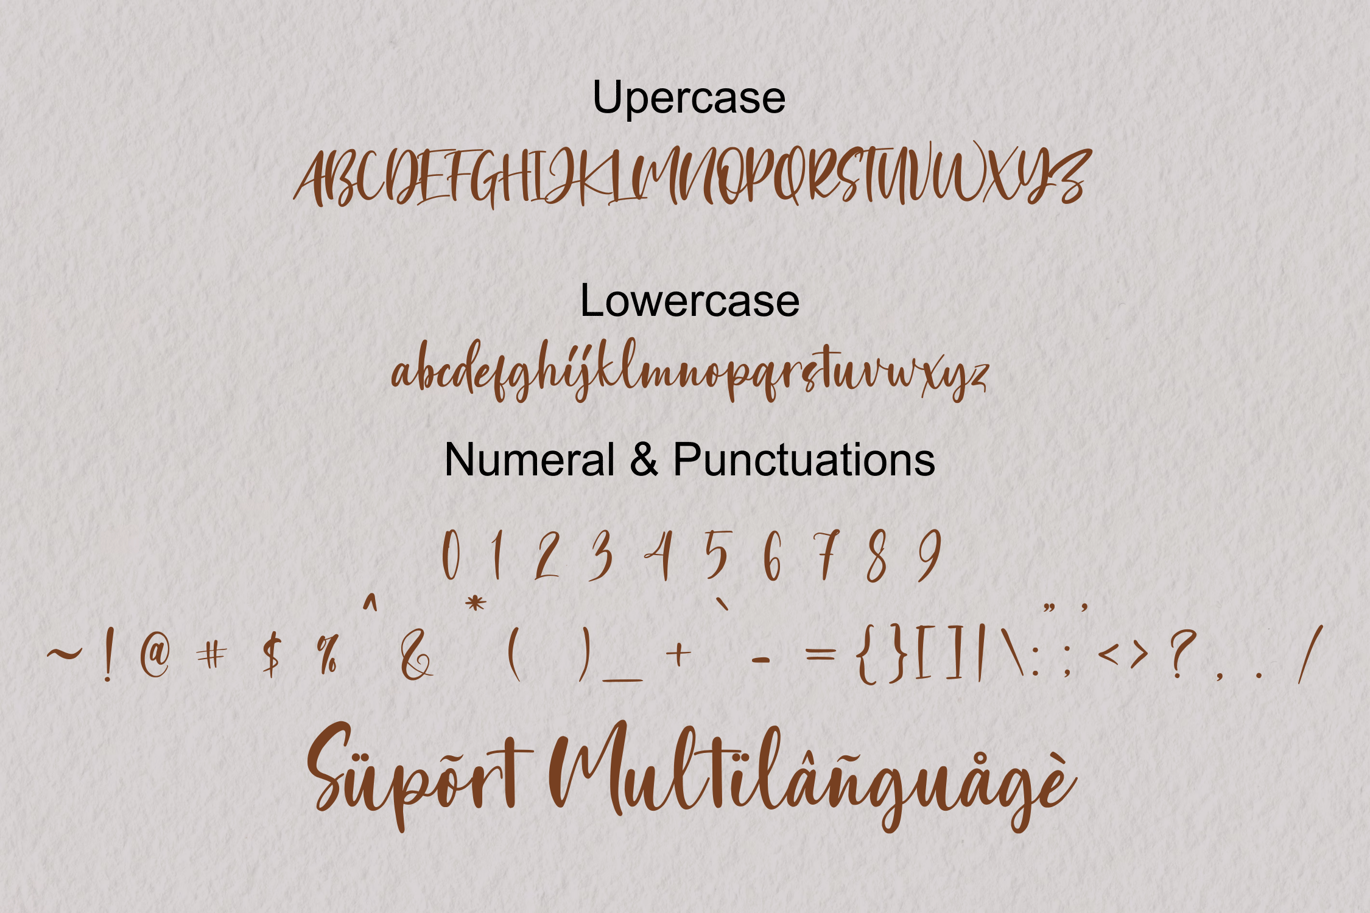 Upercase
ABCDEFGHIJKLMNOPQRSTUVWXYZ
Lowercase
abcdefghijklmnopqrstuvwxyz
Numeral & Punctuations
0 1 2 3 4 5 6 7 8 9
~ ! @ # $ % ^ & * ( ) _ + ` - = { } [ ] | \ : " ; ' < > ? , . /
Süpõrt Multïlâñguågè